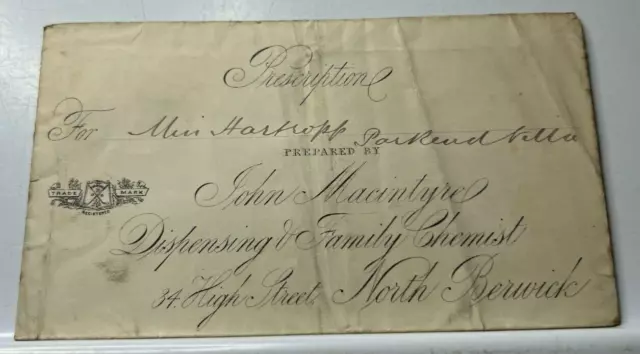 Prescription
For Miss Hartopp Parkend Villa
PREPARED BY
TRADE MARK
REGISTERED
John Macintyre
Dispensing & Family Chemist
34. High Street, North Berwick